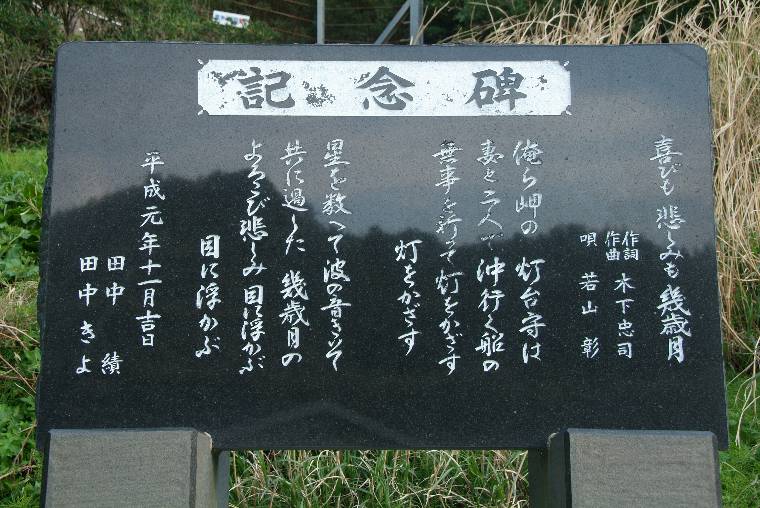 碑念記
喜びも悲しみも幾歳月
作詞
作曲
木下忠司
唄 若山彰
俺ら岬の 灯台守は
妻と二人で沖行く船の
無事を祈って灯をかざす
灯をかざす
星を数へて波の音きいて
共に過した 幾歳月の
よろこび悲しみ目に浮かぶ
目に浮かぶ
平成元年十一月吉日
田中 績
田中きよ